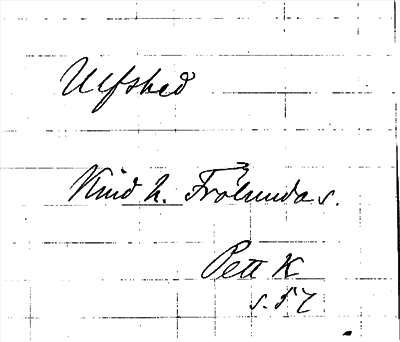 Ulfshed
Kind h. Frölunda s.
Pett K
s. 57